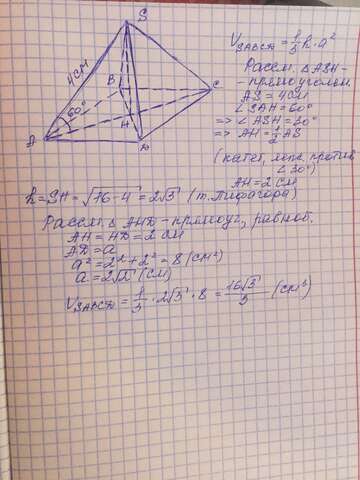 S
4см
60°
B
C
H
A
D
V_SABCD = 1/3 h · a²
Рассм. Δ ASH -
прямоугольн.
AS = 4см
∠ SAH = 60°
=> ∠ ASH = 30°
=> AH = 1/2 AS
(катет, леж. против
∠ 30°)
AH = 2 см
h = SH = √16-4 = 2√3 (т. Пифагора)
Рассм. Δ AHD - прямоуг, равноб.
AH = HD = 2 см
AD = a
a² = 2² + 2² = 8 (см²)
a = 2√2 (см)
V_SABCD = 1/3 · 2√3 · 8 = 16√3/3 (см³)